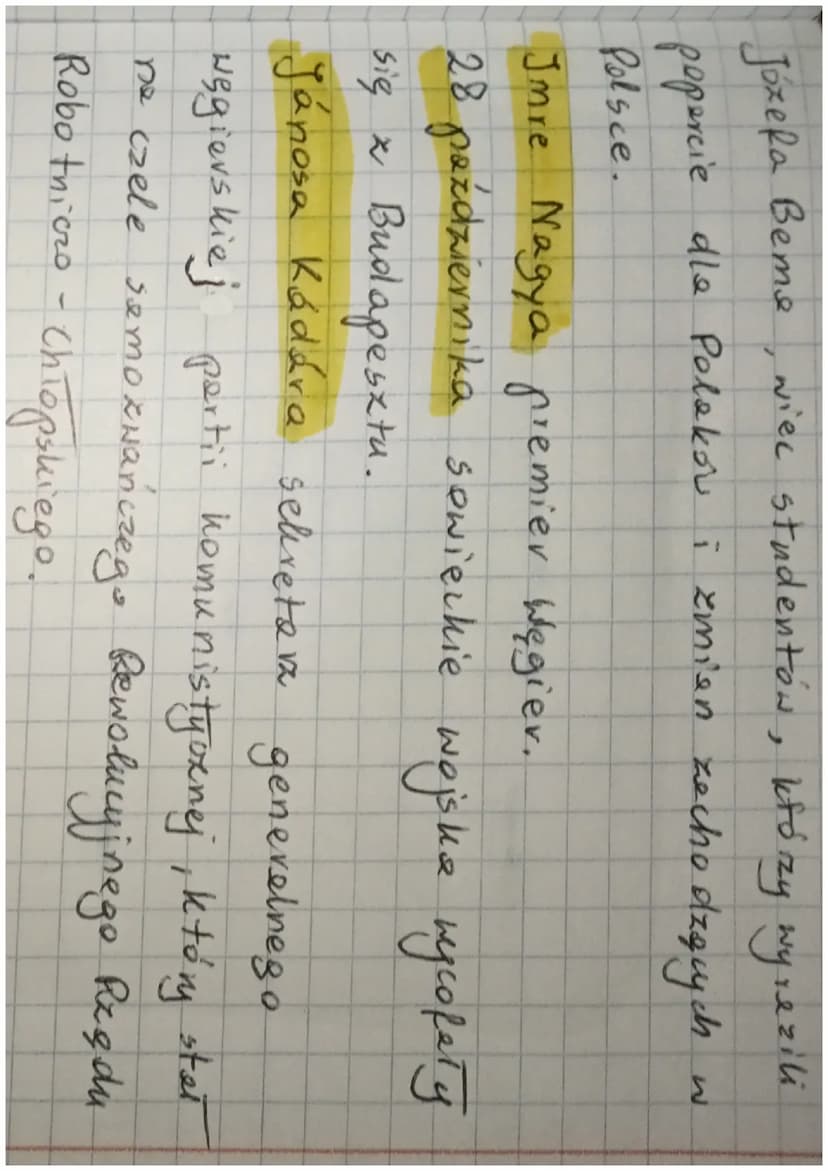 Józefa Bema, wiec studentów, którzy wyrazili
poparcie dla Polaków i zmian zachodzących w
Polsce.
Imre Nagya premier Węgier.
28 października sowieckie wojska wycofały
się z Budapesztu.
Jánosa Kádára sekretarz generalnego
węgierskiej partii komunistycznej, który stał
na czele samozwańczego Rewolucyjnego Rządu
Robotniczo - Chłopskiego.